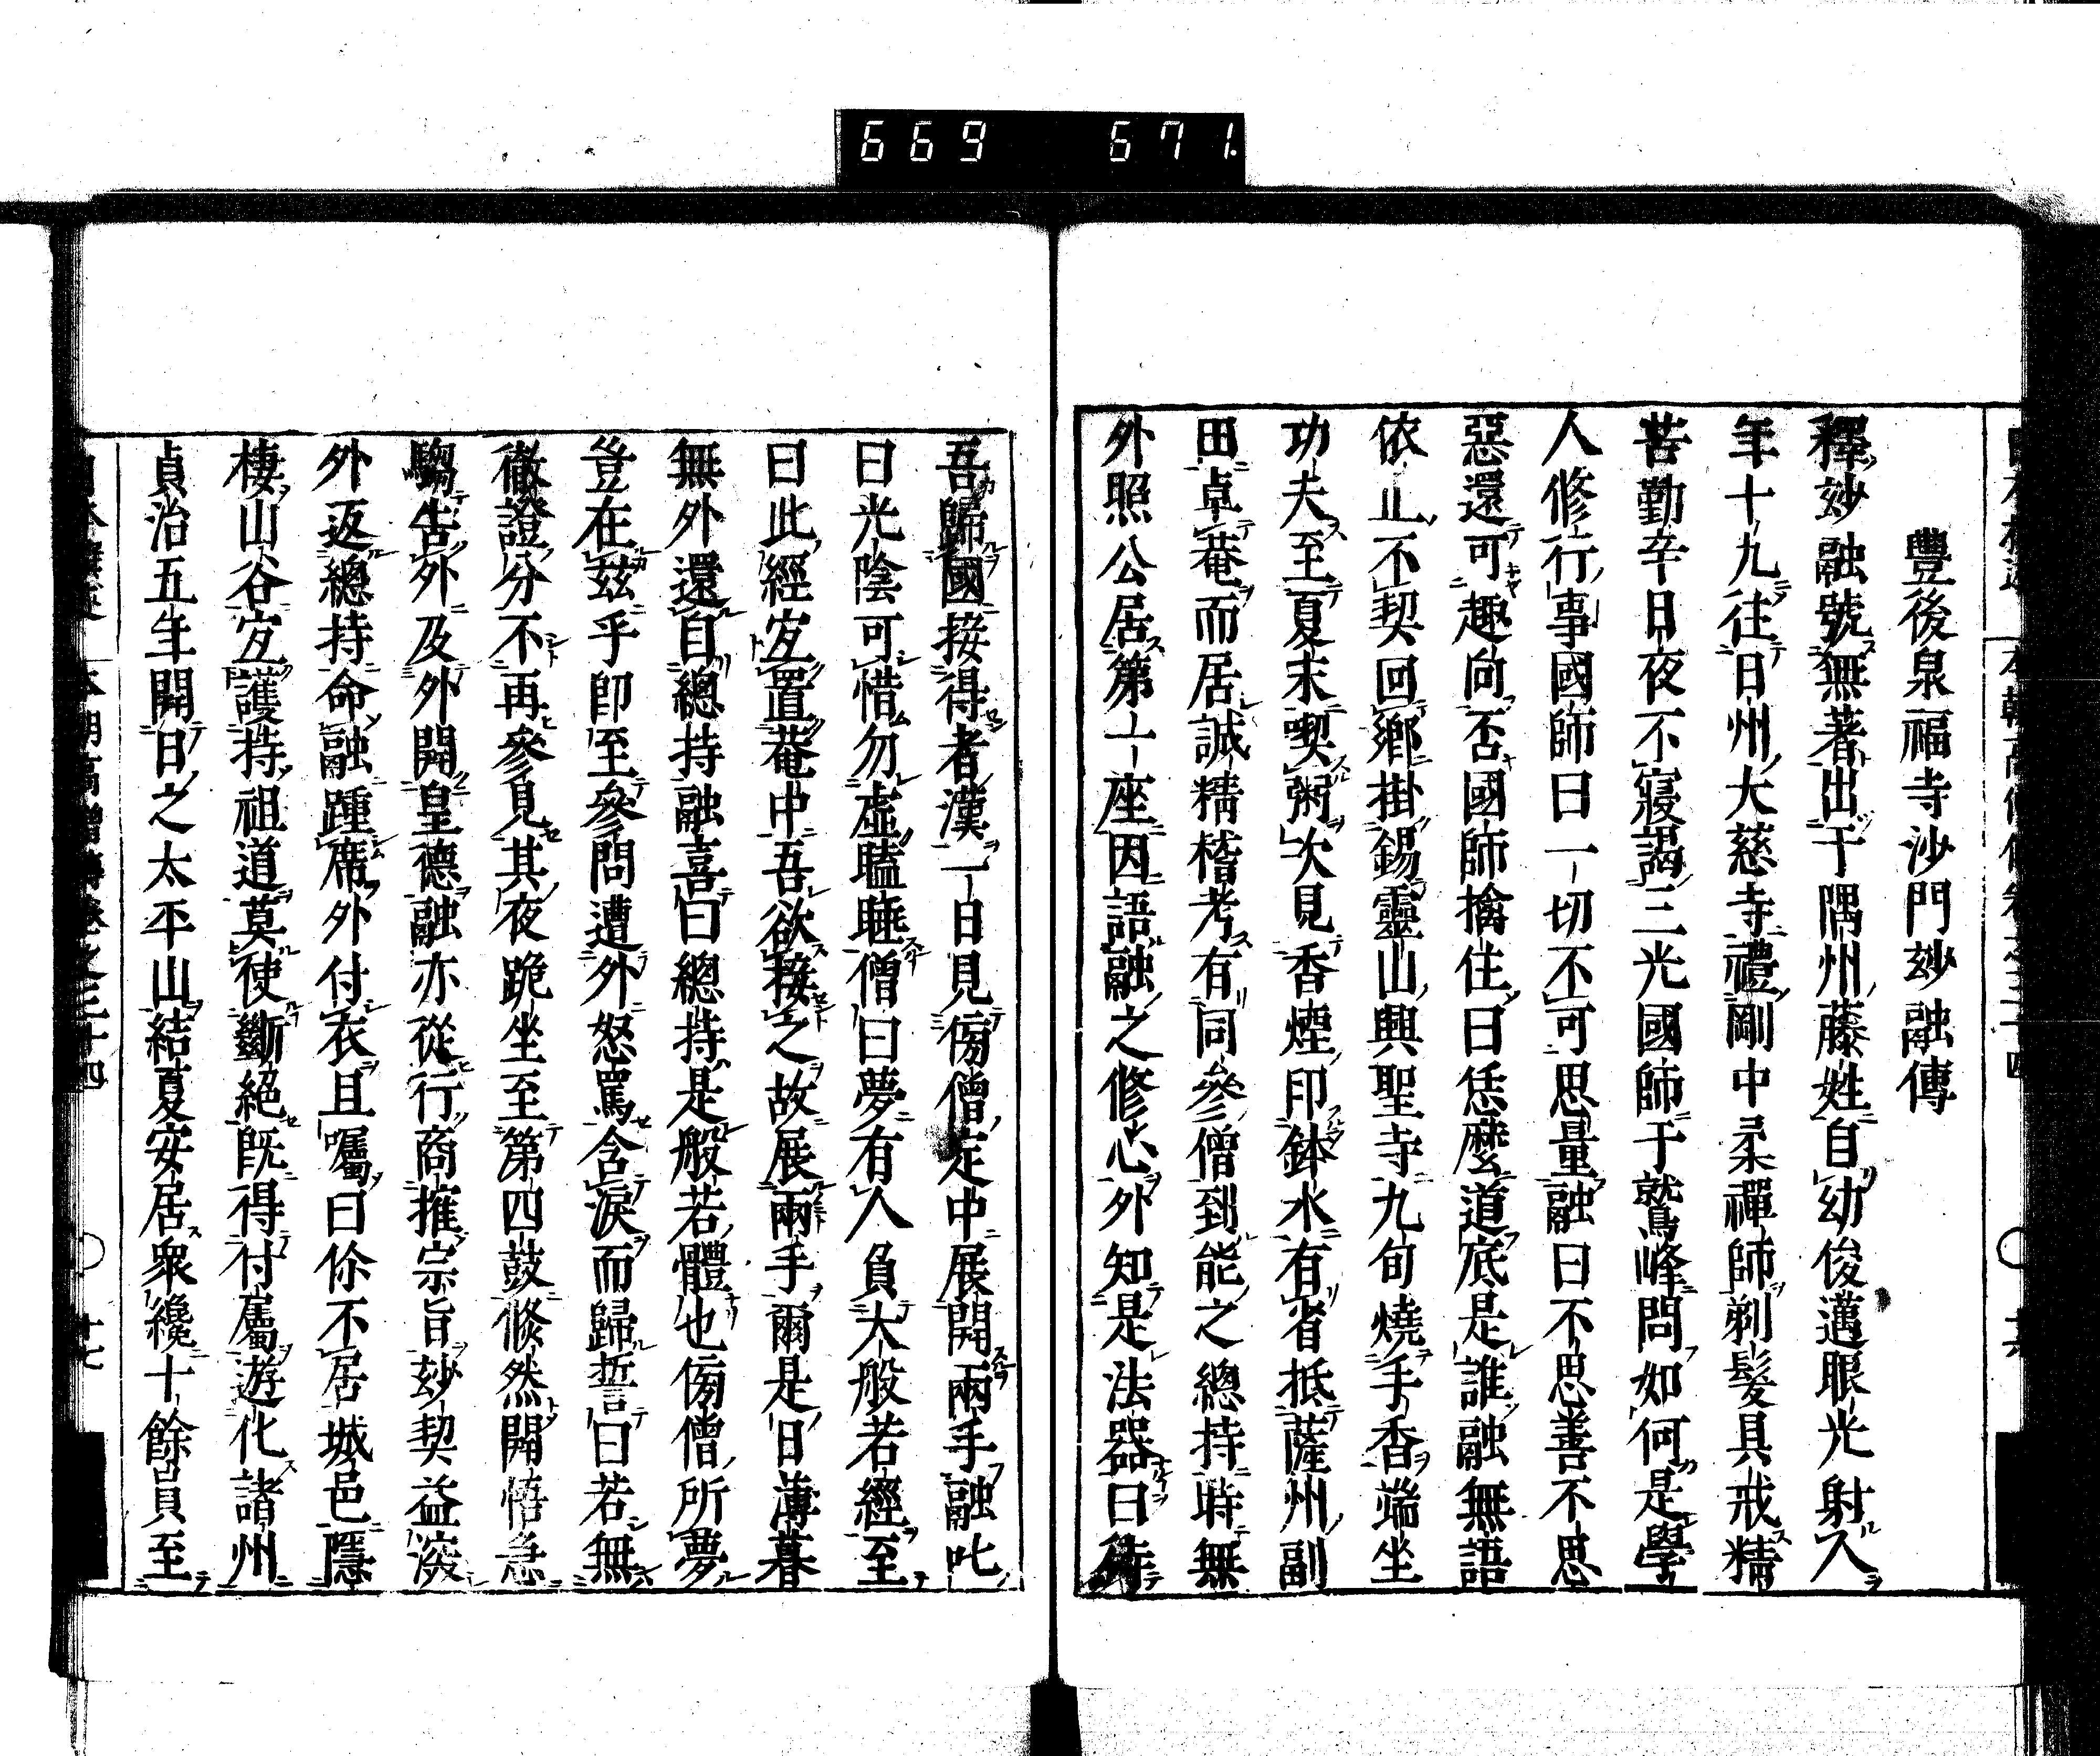 669 671.
豐後泉福寺沙門玅融傳
釋玅融號無著出于隅州藤姓自幼俊邁眼光射人
年十九往日州大慈寺禮剛中柔禪師剃髮具戒精
苦勤辛日夜不寢謁三光國師于鷲峰問如何是學
人修行事國師曰一切不可思量融曰不思善不思
惡還可趣向否國師擒住曰恁麼道底是誰融無語
依止不契回鄉掛錫靈山興聖寺九旬燒手香端坐
功夫至夏末喫粥次見香煙印鉢水有省抵薩州副
田卓菴而居誠精稽考有同參僧到能之總持時無
外照公居第一座因語融之修心外知是法器曰待
吾歸國接得者漢一日見傍僧定中展開兩手融叱
曰光陰可惜勿虛瞌睡僧曰夢有人負大般若經至
曰此經宜置菴中吾欲接之故展兩手爾是日薄暮
無外還自總持融喜曰總持是般若體也傍僧所夢
豈在茲乎即至參問遭外怒罵含淚而歸誓曰若無
徹證分不再參見其夜跪坐至第四鼓倏然開悟急
驅告外及外開皇德融亦從行商搉宗旨玅契益深
外返總持命融踵席外付衣且囑曰你不居城邑隱
棲山谷宜護持祖道莫使斷絕既得付屬遊化諸州
貞治五年開日之太平山結夏安居衆纔十餘員至
本朝高僧傳卷之三十四 十七